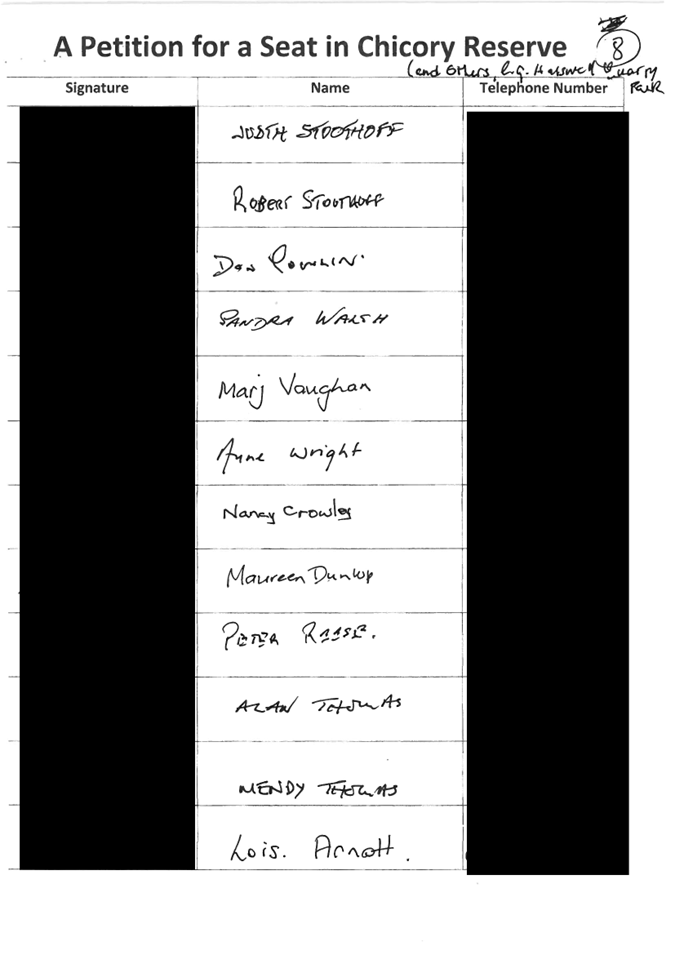 A Petition for a Seat in Chicory Reserve
8
(and others, e.g. Halswell Quarry
Park
Signature Name Telephone Number
JUDITH STOOTHOFF
ROBERT STOOTHOFF
Don
SANDRA WALSH
Marj Vaughan
Anne Wright
Nancy Crowley
Maureen Dunlop
PETER REESE.
ALAN THOMAS
WENDY THOMAS
Lois. Arnott.